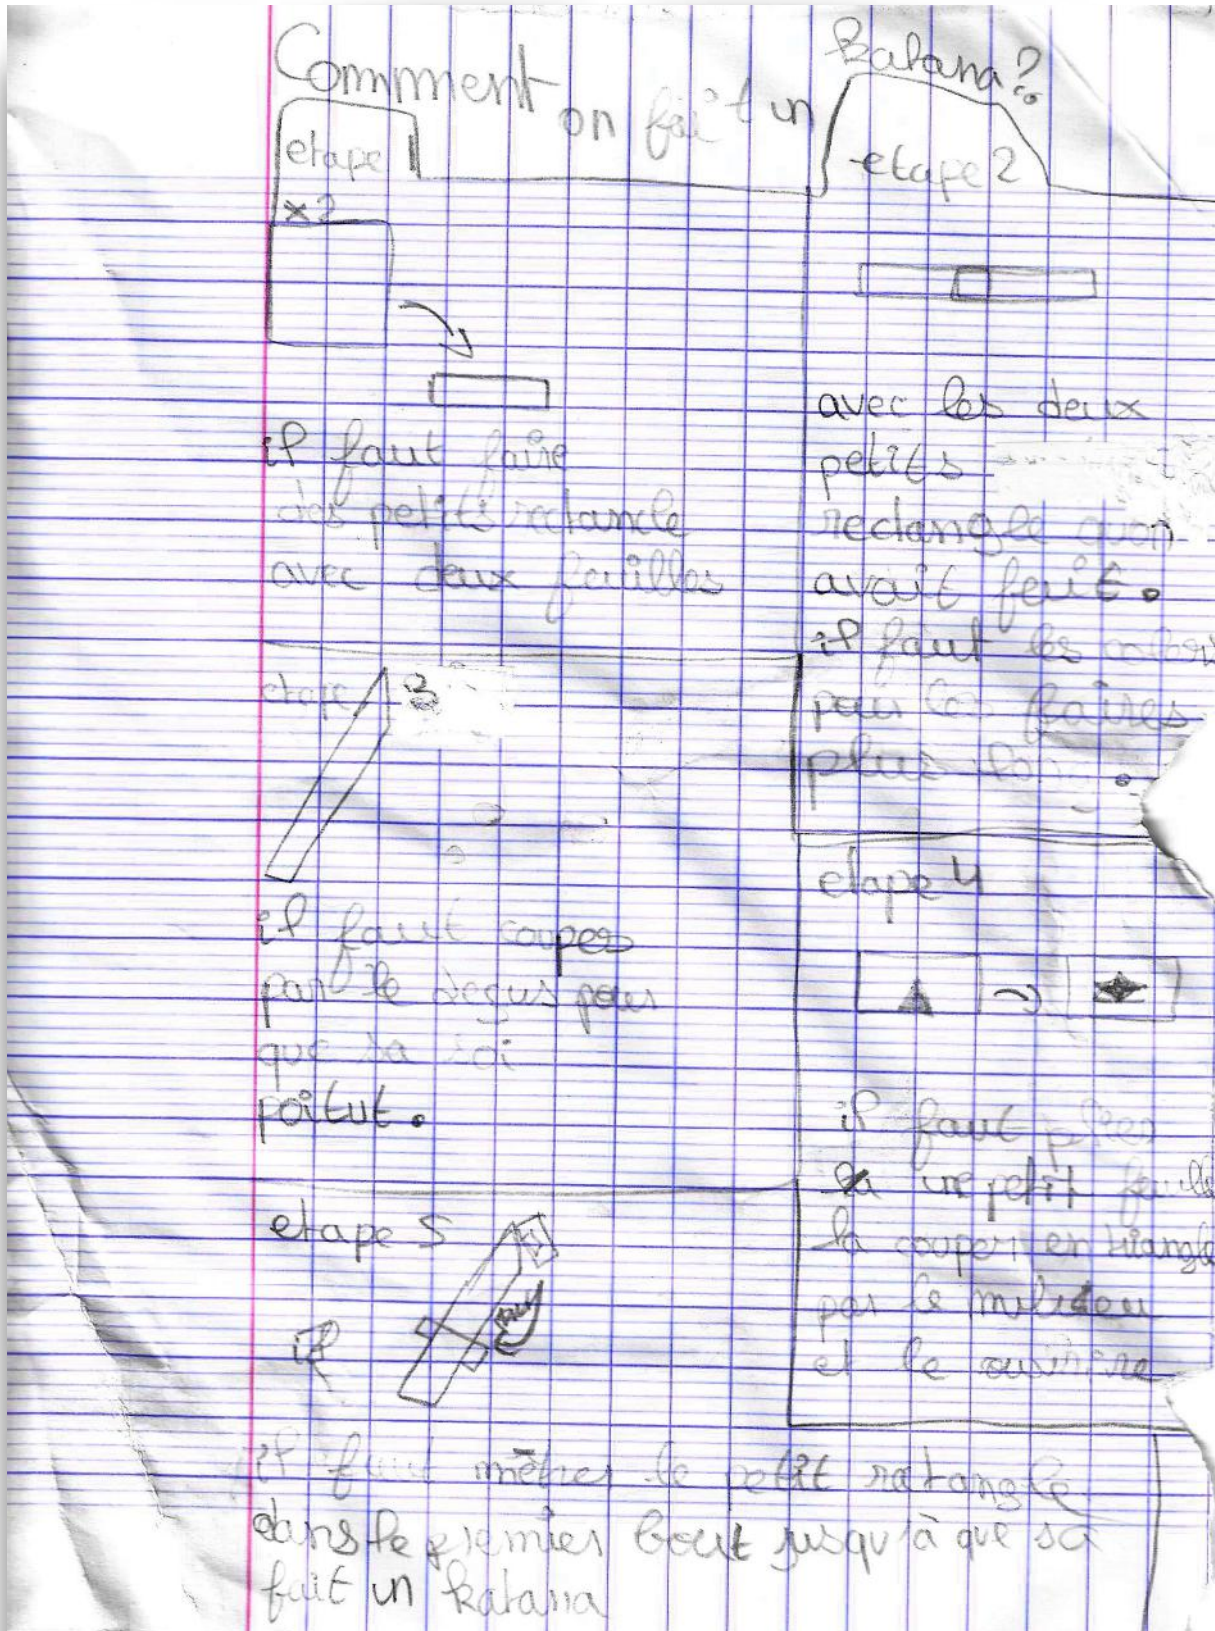 Comment on fait un
Katana ?
etape 1
x2
il faut faire
des petits ratancle
avec deux feuilles
etape 2
avec les deux
petits
rectangle quon
avait feuit.
il faut les
pour les faires
plus lon
etape 3
il faut couper
par le degus pour
que sa soi
poitut.
etape 4
il faut plier
une petit feuille
la couper en triangle
par le milieu
et le
etape 5
il
il faut mètrer le petit ratangle
dans le premier bout jusqu'à que sa
fait un katana